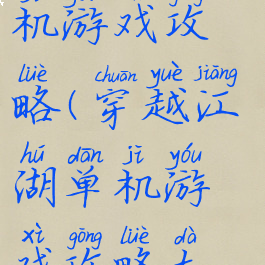 机游戏攻
lüè chuān yuè jiāng
略(穿越江
hú dān jī yóu
湖单机游
xì gōng lüè dà